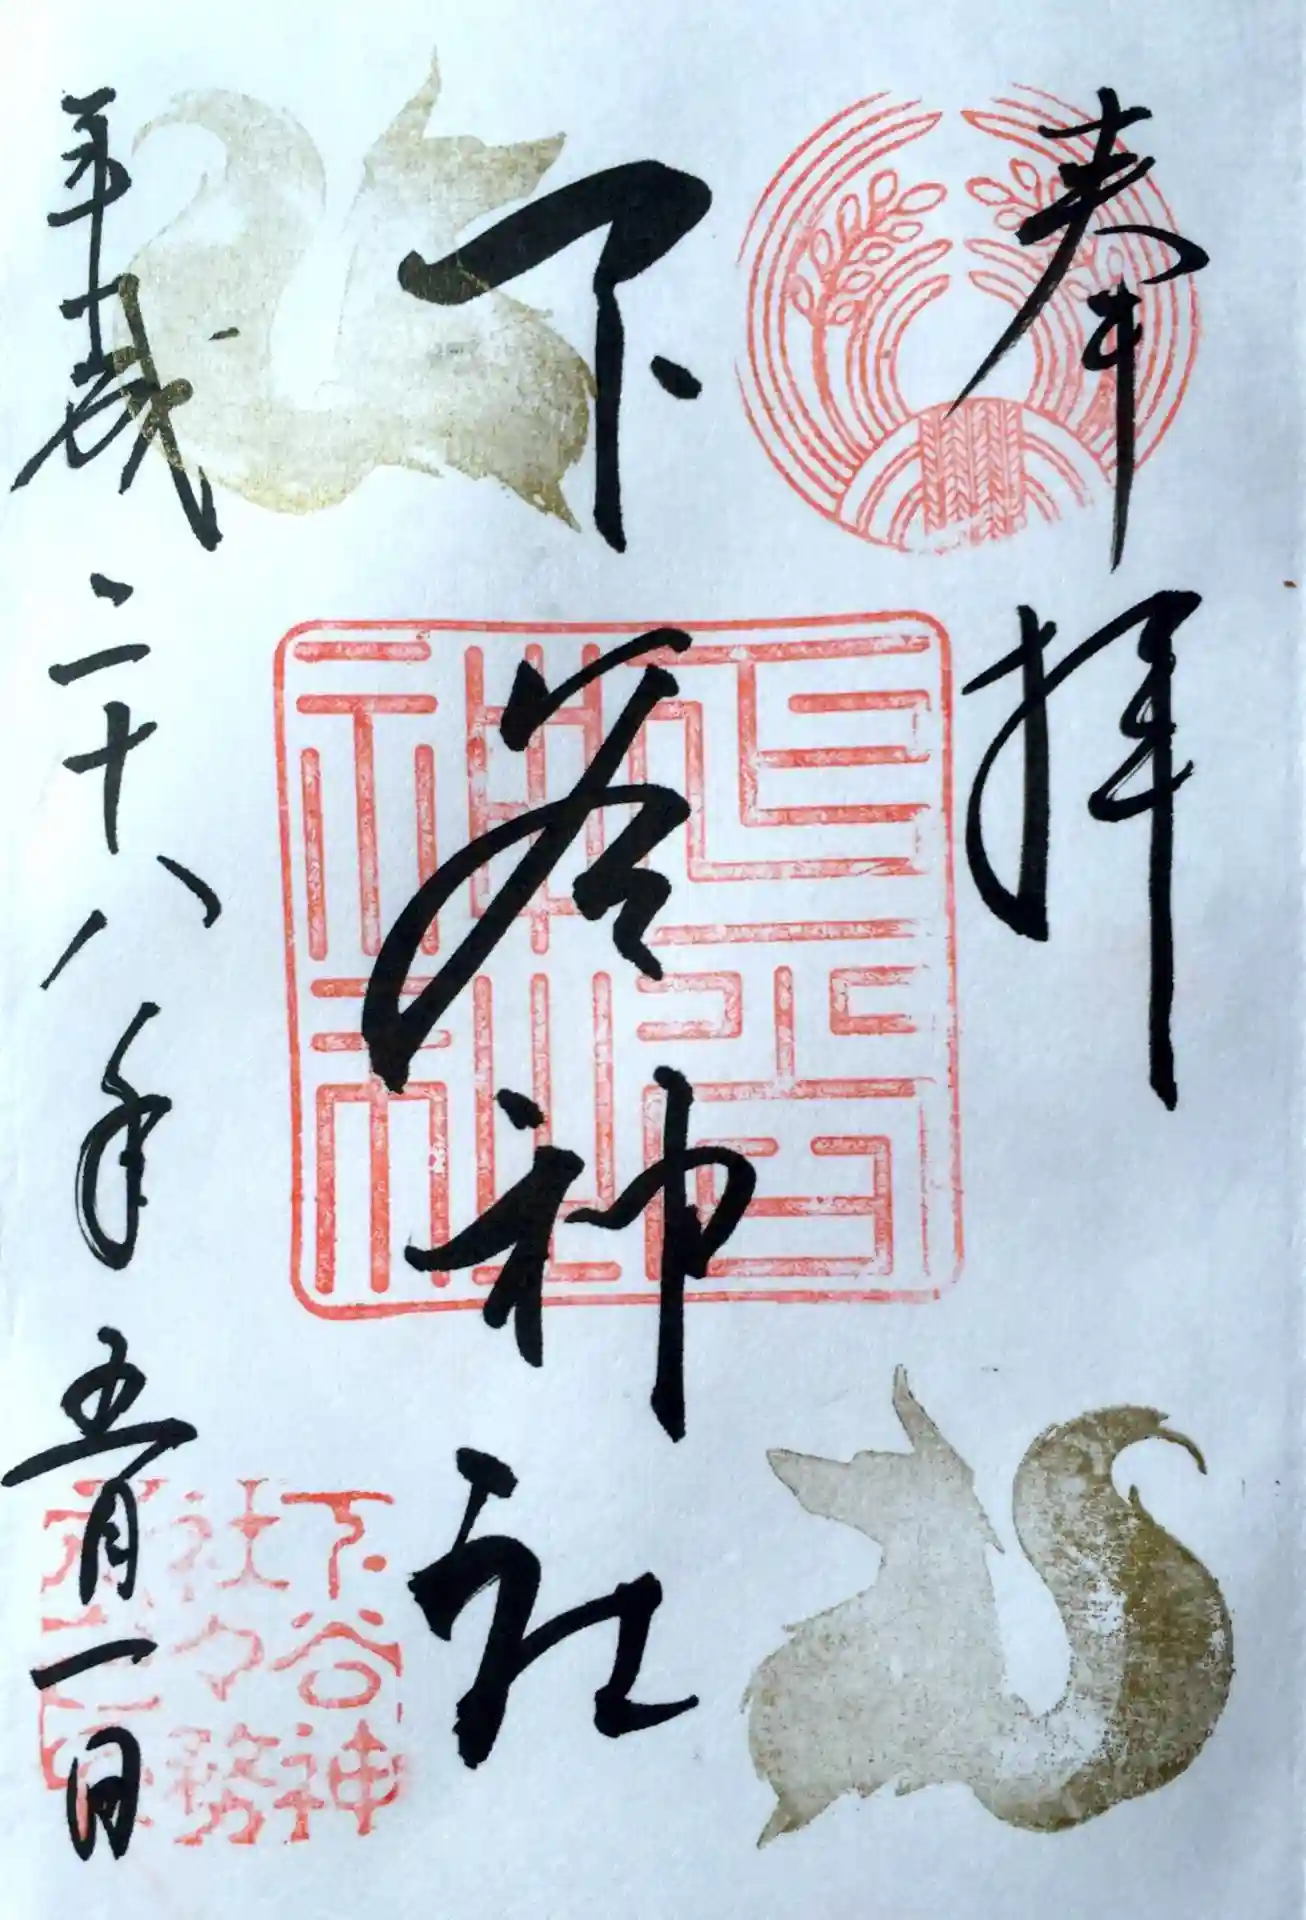 奉拝
下谷神社
平成二十八年五月一日
下谷神
社々務